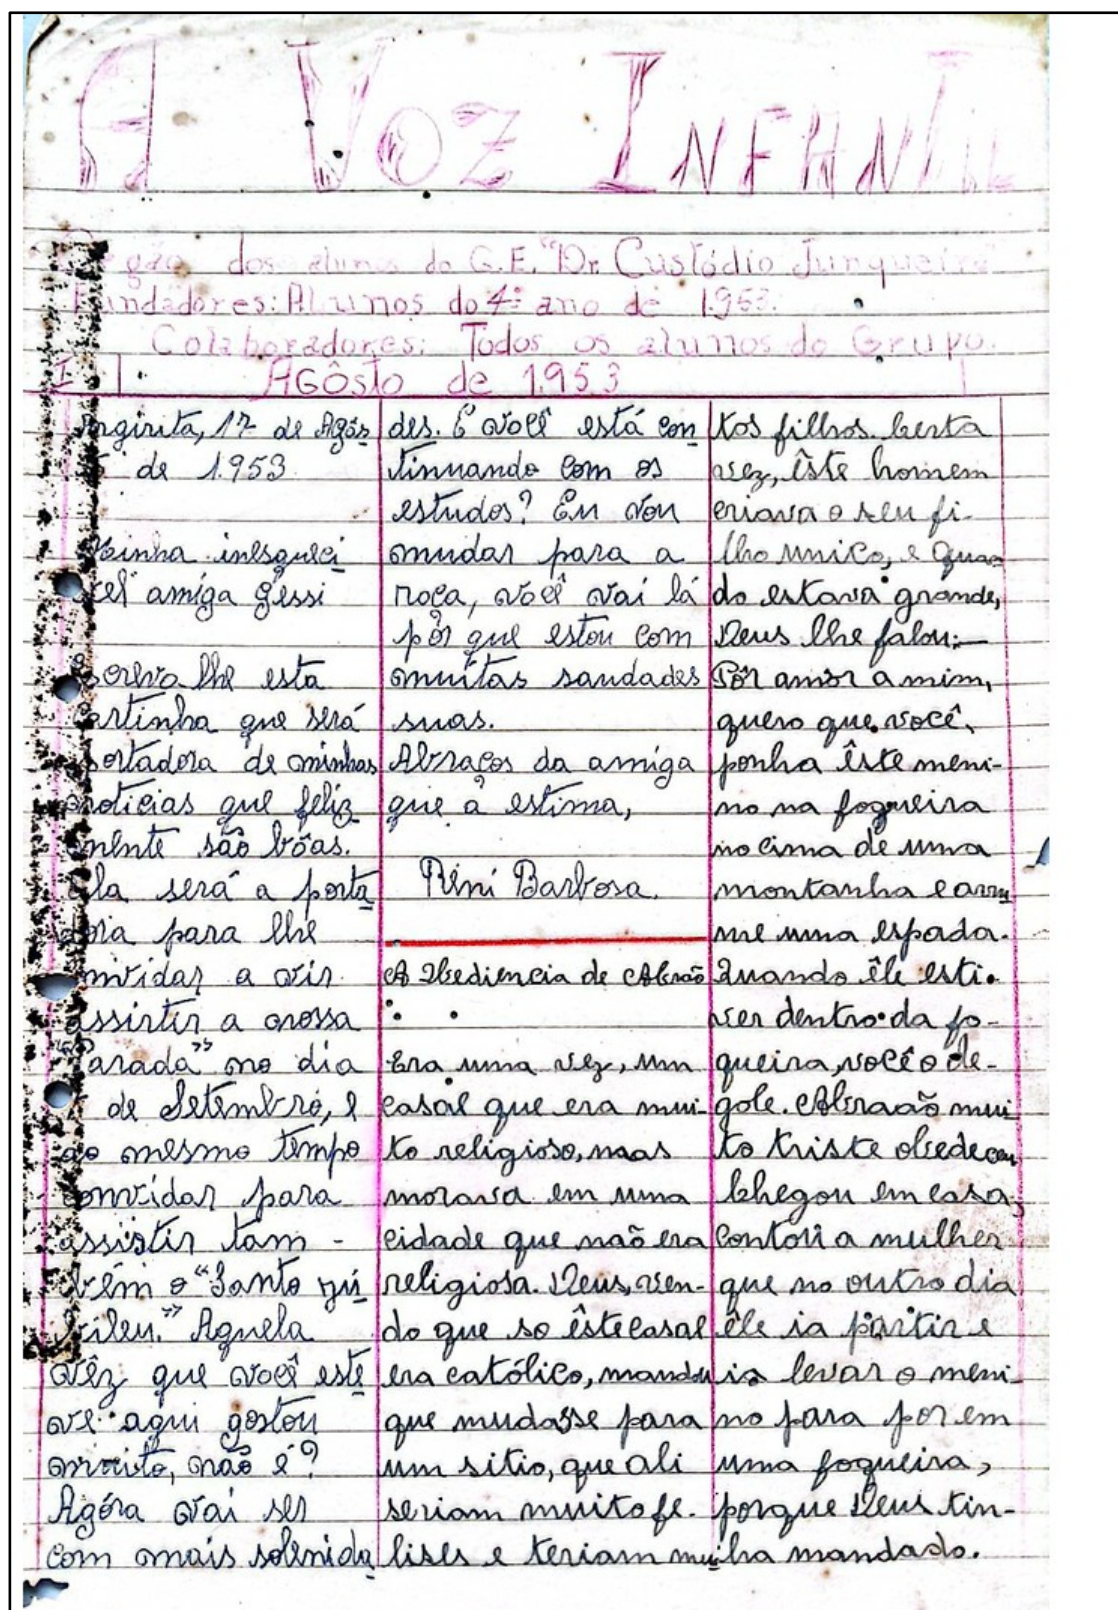 A VOZ INFANTIL
gão dos alunos do G.E. "Dr Custódio Junqueira
Fundadores: Alunos do 4º ano de 1.953.
Colaboradores: Todos os alunos do Grupo.
I AGÔSTO de 1.953
Argirita, 17 de Agôs
de 1.953
Minha inesqueci
vel amiga Géssi
Escrevo lhe esta
cartinha que será
portadora de minhas
noticias que feliz
mente são bôas.
Ela será a porta
dora para lhe
convidar a vir
assistir a nossa
"Parada" no dia
de Setembro, e
ao mesmo tempo
convidar para
assistir tam -
bém o "Santo jú
bileu." Aquela
vêz que você este
ve aqui gostou
muito, não é?
Agóra vai ser
com mais solenida
des. E você está con
tinuando com os
estudos? Eu vou
mudar para a
roça, você vai lá
pôr que estou com
muitas saudades
suas.
Abraços da amiga
que a estima,
Rêni Barbosa.
A Obediencia de Abraão
Era uma vez, um
casal que era mui-
to religioso, mas
morava em uma
cidade que não era
religiosa. Deus, ven-
do que so êste casal
era católico, mandou
que mudasse para
um sitio, que ali
seriam muito fe-
lises e teriam mui
tos filhos. Certa
vez, êste homem
criava o seu fi-
lho unico, e quan
do estava grande,
Deus lhe falou: —
Pôr amôr a mim,
quero que você,
ponha êste meni-
no na fogueira
no cima de uma
montanha e arru
me uma espada.
Quando êle esti-
ver dentro da fo-
gueira, você o de-
gole. Abraão mui
to triste obedeceu
Chegou em casa,
contou a mulher
que no outro dia
êle ia partir e
ia levar o meni-
no para por em
uma fogueira,
porque Deus tin-
ha mandado.